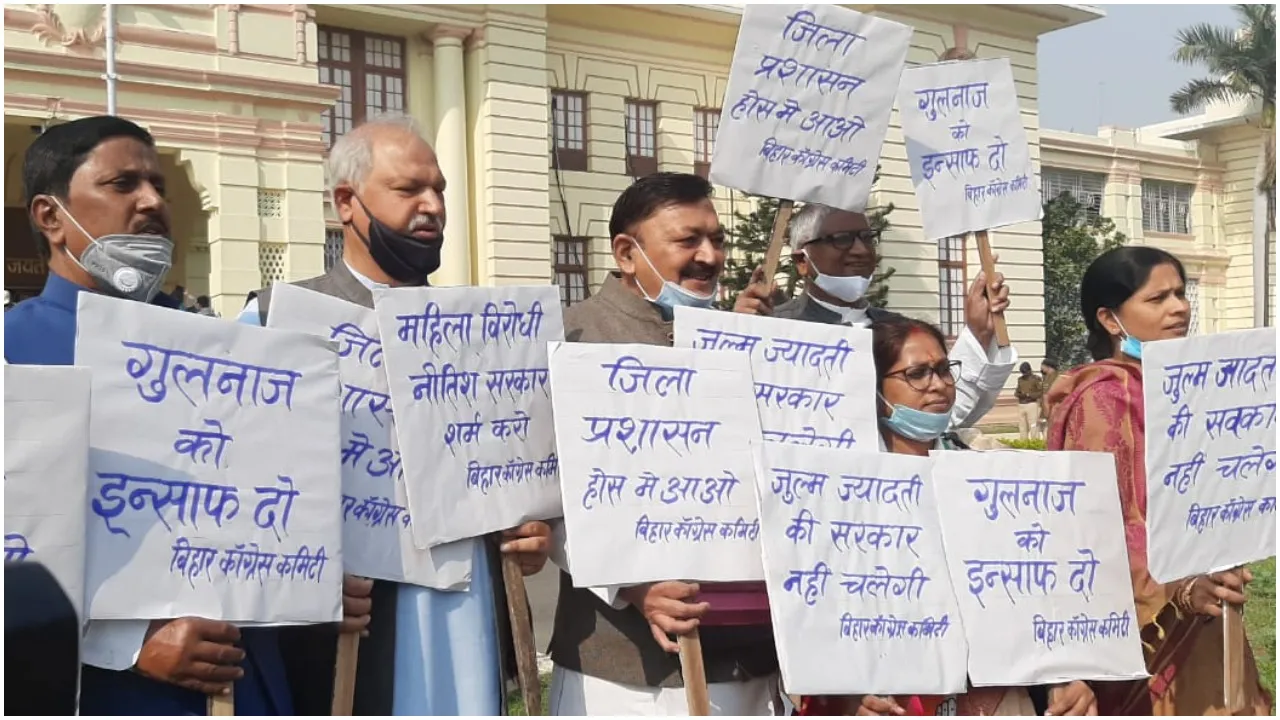 जिला
प्रशासन
होस मे आओ
बिहार काँग्रेस कमिटी
गुलनाज
को
इन्साफ दो
बिहार काँग्रेस कमिटी
गुलनाज
को
इन्साफ दो
बिहार काँग्रेस कमिटी
महिला विरोधी
नीतिश सरकार
शर्म करो
बिहार काँग्रेस कमि
जिला
प्रशासन
होस मे आओ
बिहार काँग्रेस कमिटी
जुल्म ज्यादती
सरकार
चलेगी
जुल्म ज्यादती
की सरकार
नही चलेगी
बिहार काँग्रेस कमिटी
गुलनाज
को
इन्साफ दो
बिहार काँग्रेस कमिटी
जुल्म
की
नही चलेगी
बिहार काँग्रेस
मे
काँग्रेस